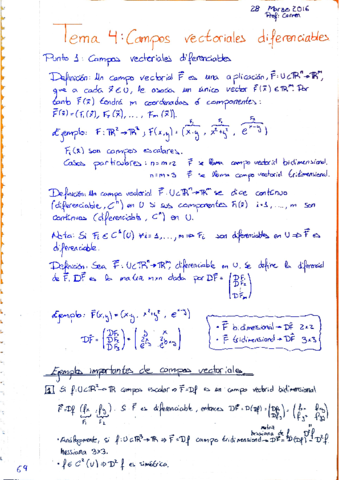 28 Marzo 2016
Prof: Carmen
Tema 4: Campos vectoriales diferenciables
Punto 1: Campos vectoriales diferenciables
Definición: Un campo vectorial F⃗ es una aplicación, F⃗: U⊂ℝⁿ→ℝᵐ,
que a cada x⃗∈U, le asocia un único vector F⃗(x⃗)∈ℝᵐ. Por
tanto F⃗(x⃗) tendrá m coordenadas o componentes:
F⃗(x⃗)=(F₁(x⃗), F₂(x⃗), ..., Fₘ(x⃗)).
Ejemplo: F: ℝ²→ℝ³, F(x,y)=(x·y, x²+y², e^(x-y))
F₁ F₂ F₃
Fᵢ(x⃗) son campos escalares.
Casos particulares: n=m=2 F⃗ se llama campo vectorial bidimensional.
n=m=3 F⃗ se llama campo vectorial tridimensional.
Definición: Un campo vectorial F⃗: U⊂ℝⁿ→ℝᵐ se dice continuo
(diferenciable, Cᵏ) en U si sus componentes Fᵢ(x⃗) i=1, ..., m son
continuas (diferenciable, Cᵏ) en U.
Nota: Si Fᵢ∈C¹(U) ∀i=1, ..., m ⇒ Fᵢ son diferenciables en U ⇒ F⃗ es
diferenciable.
Definición: Sea F⃗: U⊂ℝⁿ→ℝᵐ, diferenciable en U, se define la diferencial
de F⃗, DF⃗ es la matriz m×n dada por DF⃗ = (DF₁ DF₂ ⋮ DFₘ)
Ejemplo: F(x,y)=(x·y, x²+y², e^(x-y))
DF⃗ = (DF₁ DF₂ DF₃) =
• F⃗ bidimensional → DF⃗ 2×2
• F⃗ tridimensional → DF⃗ 3×3
Ejemplos importantes de campos vectoriales:
1 Si f: U⊂ℝ²→ℝ campo escalar ⇒ F⃗=Df es un campo vectorial bidimensional
F⃗=Df (fx, fy). Si F⃗ es diferenciable, entonces DF⃗ = D(Df) =
F₁ F₂
matriz
hessiana de f
• Análogamente, si f: U⊂ℝ³→ℝ ⇒ F⃗=Df campo tridimensional → DF⃗=D(Df)=D²f
hessiana 3×3.
• f∈C²(U) ⇒ D²f es simétrica.
69